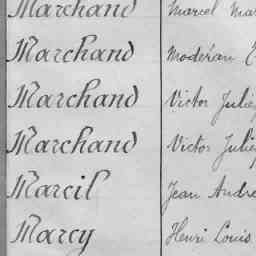 Marchand Marcel
Marchand Modéran
Marchand Victor
Marchand Victor
Marcil Jean André
Marcy Henri Louis